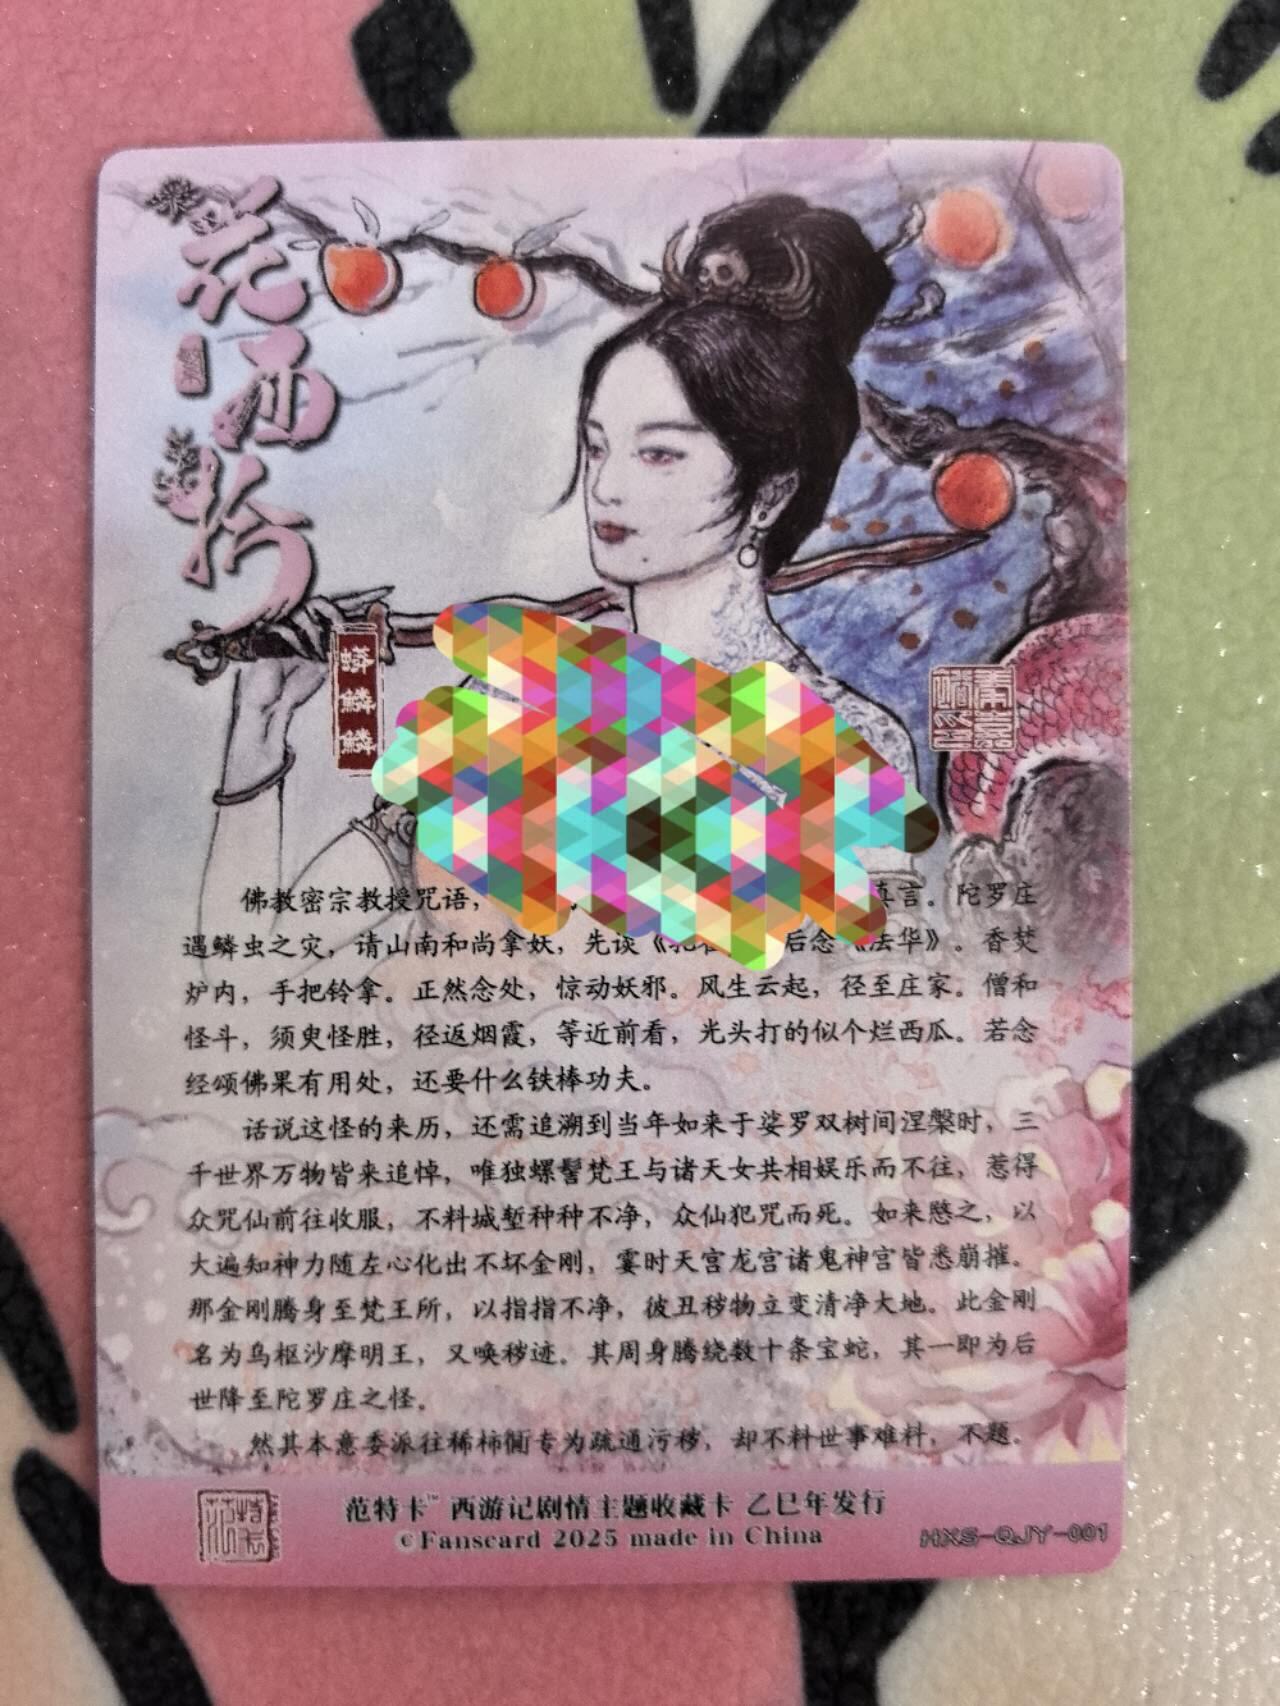 花西拾
佛教密宗教授咒语，真言。陀罗庄
遇鳞虫之灾，请山南和尚拿妖，先谈《后念《法华》。香焚
炉内，手把铃拿。正然念处，惊动妖邪。风生云起，径至庄家。僧和
怪斗，须臾怪胜，径返烟霞，等近前看，光头打的似个烂西瓜。若念
经颂佛果有用处，还要什么铁棒功夫。
话说这怪的来历，还需追溯到当年如来于娑罗双树间涅槃时，三
千世界万物皆来追悼，唯独螺髻梵王与诸天女共相娱乐而不往，惹得
众咒仙前往收服，不料城堑种种不净，众仙犯咒而死。如来愍之，以
大遍知神力随左心化出不坏金刚，霎时天宫龙宫诸鬼神宫皆悉崩摧。
那金刚腾身至梵王所，以指指不净，彼丑秽物立变清净大地。此金刚
名为乌枢沙摩明王，又唤秽迹。其周身腾绕数十条宝蛇，其一即为后
世降至陀罗庄之怪。
然其本意委派往稀柿衕专为疏通污秽，却不料世事难料，不题。
范特卡™ 西游记剧情主题收藏卡 乙巳年发行
©Fanscard 2025 made in China
HXS-QJY-001